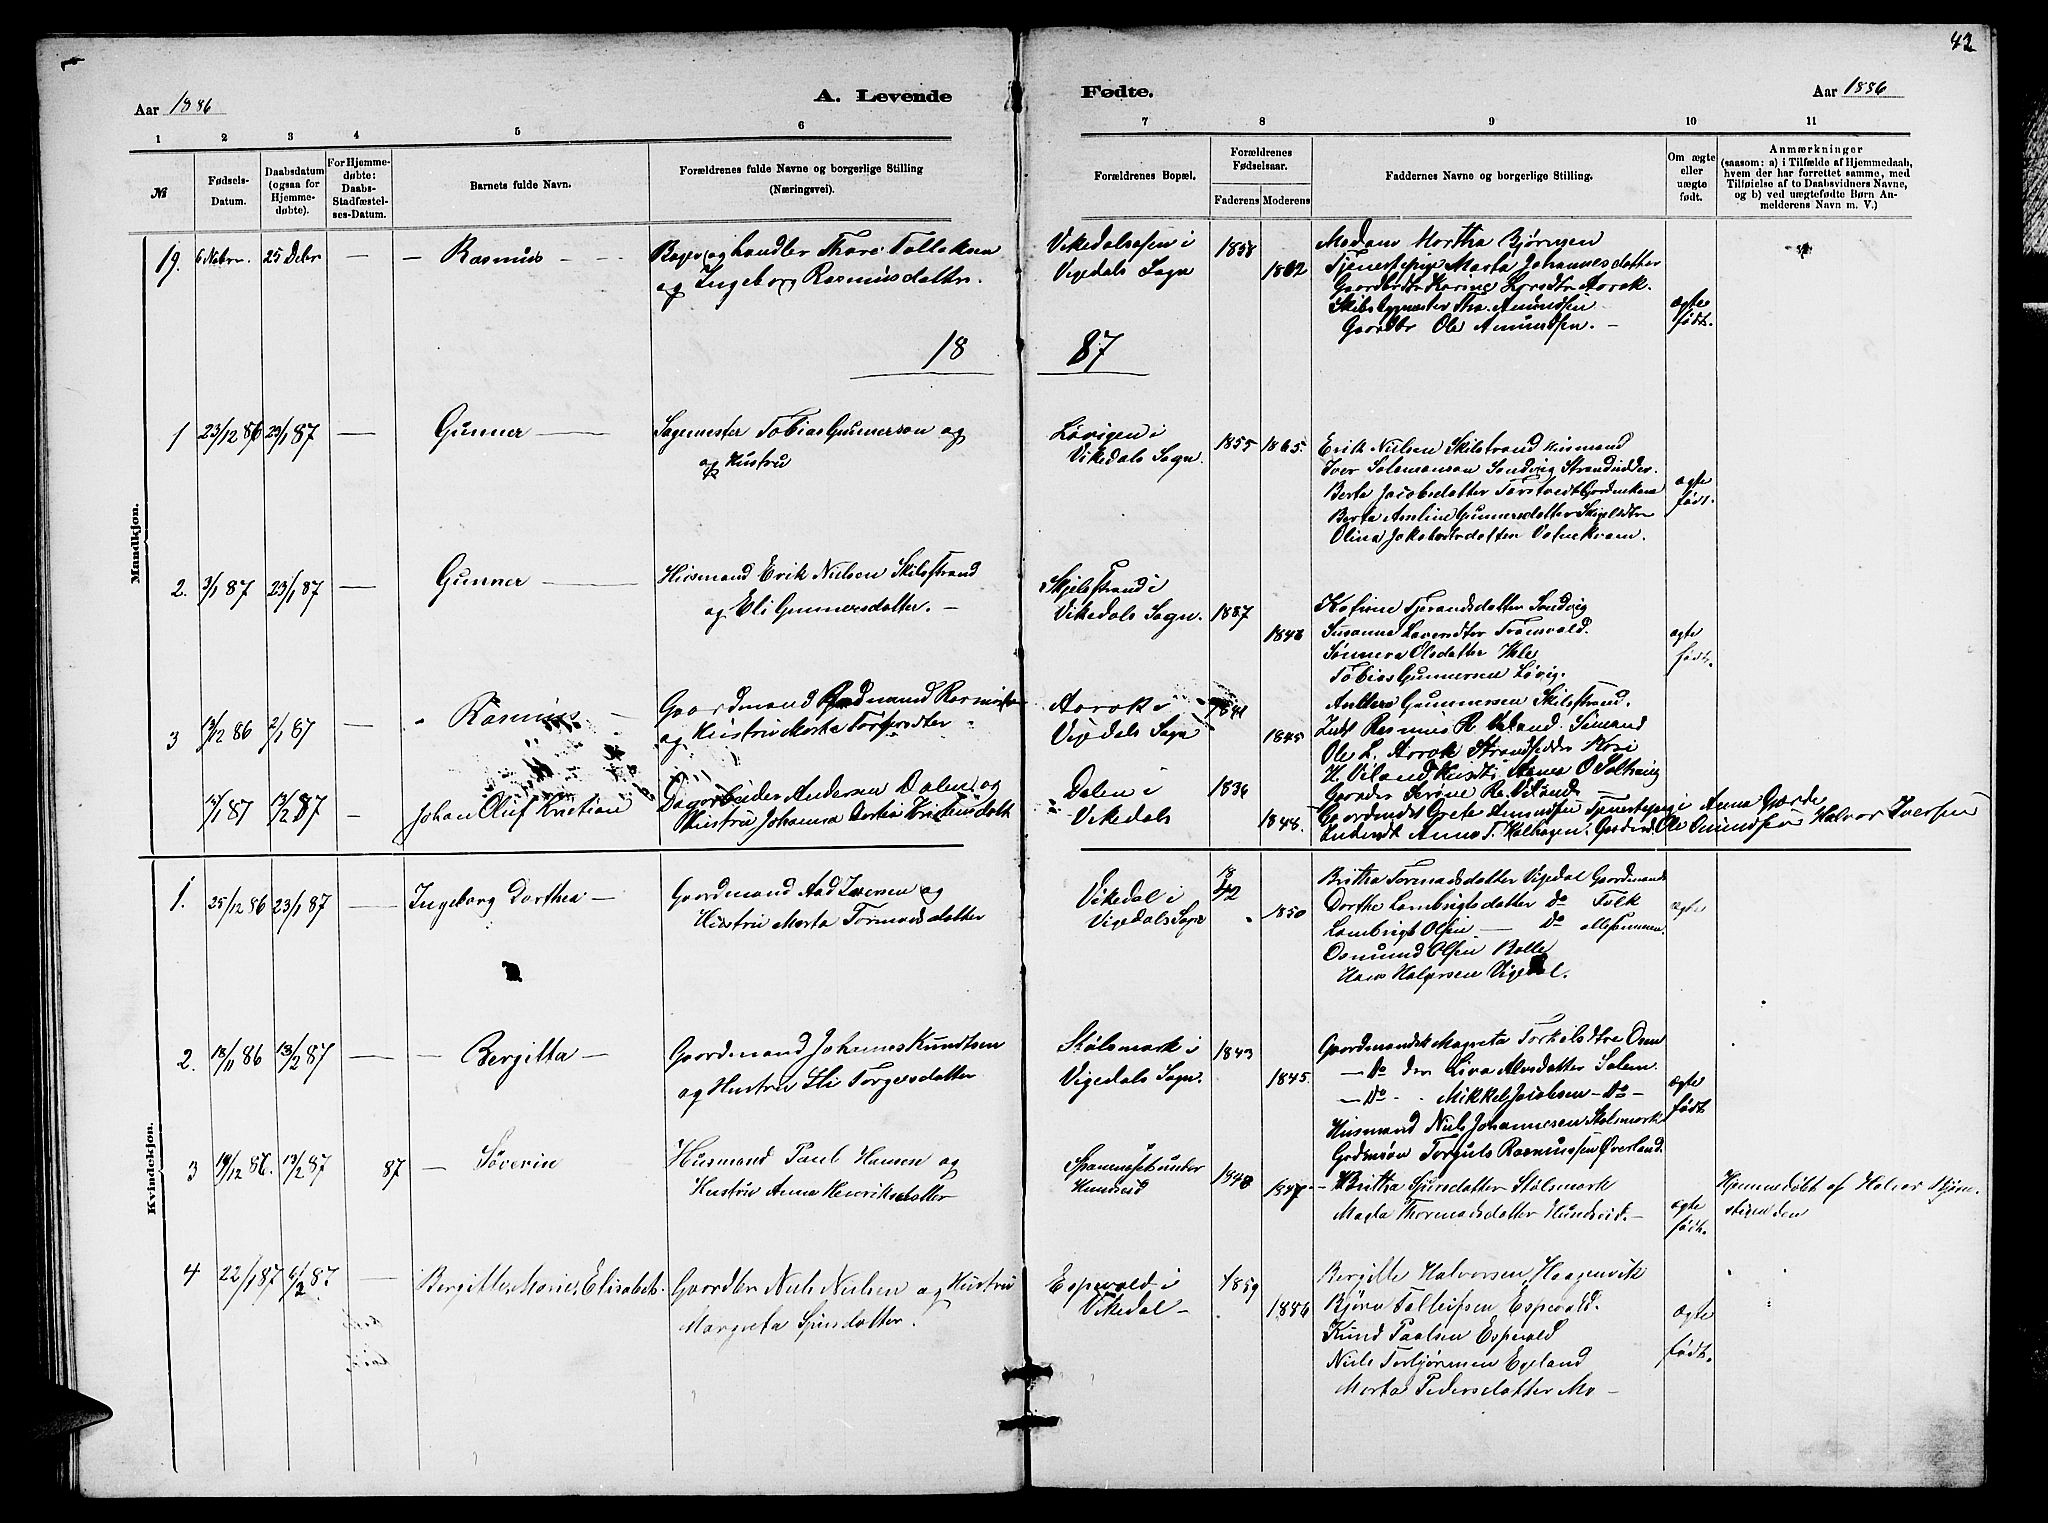 42
Aar 1886
A. Levende
Fødte.
Aar 1886
1 2 3 4 5 6 7 8 9 10 11
№
Fødsels-
Datum.
Daabsdatum
(ogsaa for
Hjemme-
døbte).
For Hjemme-
døbte:
Daabs-
Stadfæstel-
ses-Datum.
Barnets fulde Navn.
Forældrenes fulde Navne og borgerlige Stilling
(Næringsvei).
Forældrenes Bopæl.
Forældrenes
Fødselsaar.
Faderens
Moderens
Faddernes Navne og borgerlige Stilling.
Om ægte
eller
uægte
født.
Anmærkninger
(saasom: a) i Tilfælde af Hjemmedaab,
hvem der har forrettet samme, med
Tilføielse af to Daabsvidners Navne,
og b) ved uægtefødte Børn An-
melderens Navn m. V.)
Mandkjøn.
19. 6 Nobr. 25 Debr — — Rasmus
og handler Thore Tollaksen
og Ingeborg Rasmusdatter.
Vikedalsosen i
Vigedals Sogn
1858
1862
Madam Martha Bjørnsen
Tjenestepige Marta Johannesdatter
Thr. Amundsen
Ole Amundsen. —
ægte
født.
18 87
1 23/12 86 23/1 87 — Gunner —
Sagmester Tobias Gunnerson og
og Hustru
Løvigen i
Vikedals Sogn.
1855 1865.
Erik Nielsen Skilstrand Husmand
Iver Salamonsen Sandvig Strandsidder.
Berta Jacobsdatter Torstvedt
Berta Amline Gunnersdatter
Olina Jakobsdatter
ægte
født.
2. 3/1 87 23/1 87 — Gunner —
Husmand Erik Nielsen Skilstrand
og Eli Gunnersdatter. —
Skjelstrand i
Vikedals Sogn.
1837
1843
Tjerandsdatter Sandvig
Susanna
Sønneva Olsdatter Hole
Tobias Gunnersen Løvig.
Anders Gunnersen Skilstrand.
ægte
født.
3 13/12 86 2/1 87 — Rasmus —
Gaardmand
og Hustru Marta
Aarok i
Vigedals Sogn
1841
1845
Rasmus R.
Ole L. Aarok Strandsidder
13/2 87 — Johan Oluf Kristian
Dagarbeider Andersen Dalen og
Hustru Johanna Kristensdatt
Dalen i
Vikedals
1836
1848.
Grete Amundsen Tjenestepige Anna
Ole Omundsen Halvor Iversen
Kvindekjøn.
1. 25/12 86 23/1 87 — Ingeborg Dorthea —
Gaardmand Aad Iversen og
Hustru Marta Tormodsdatter
Vikedal i
Vigedals Sogn
18
42
1850
Britha Tormodsdatter Vigedal Gaardmands
Dorthe Lambrigtsdatter Do Folk
Lambrigt Olsen — Do allesammen.
Osmund Olsen
Hans Halvorsen Vigedal.
ægte
2. 18/11 86 13/2 87 — — Bergitta —
Gaardmand Johannes Knudsen
og Hustru Eli Torgersdatter
Stølsmark i
Vigedals Sogn.
1843
1845.
Gaardmandsk Magreta Torkelsdtr
— Do Liva Alvsdatter Salem.
— Do Mikkel Jacobsen — Do —
Husmand Niels Johannesen Stølsmark
Rasmussen Øverland.
ægte
født
3 19/12 86. 13/2 87 87 — Søverin
Husmand Paul Hansen og
Hustru Anna Henriksdatter
under
Hundseid
1848
1847 —
Britha Spersdatter Stølsmark
Magla Thormodsdatter Hundseid. —
ægte
født.
Hjemmedøbt af Halvor
4 22/1 87 6/2 87 — Bergitte Marie Elisabet.
Gaardbr Niels Nielsen og Hustru
Margreta Spersdatter.
Espevold i
Vikedal —
1859
1886
Bergitte Halvorsen Haagenvik
Bjørn Tolleifsen Espevold.
Knud Paalsen Espevold
Niels Torbjørnsen Egeland
Marta Pedersdatter Mo —
ægte
født.